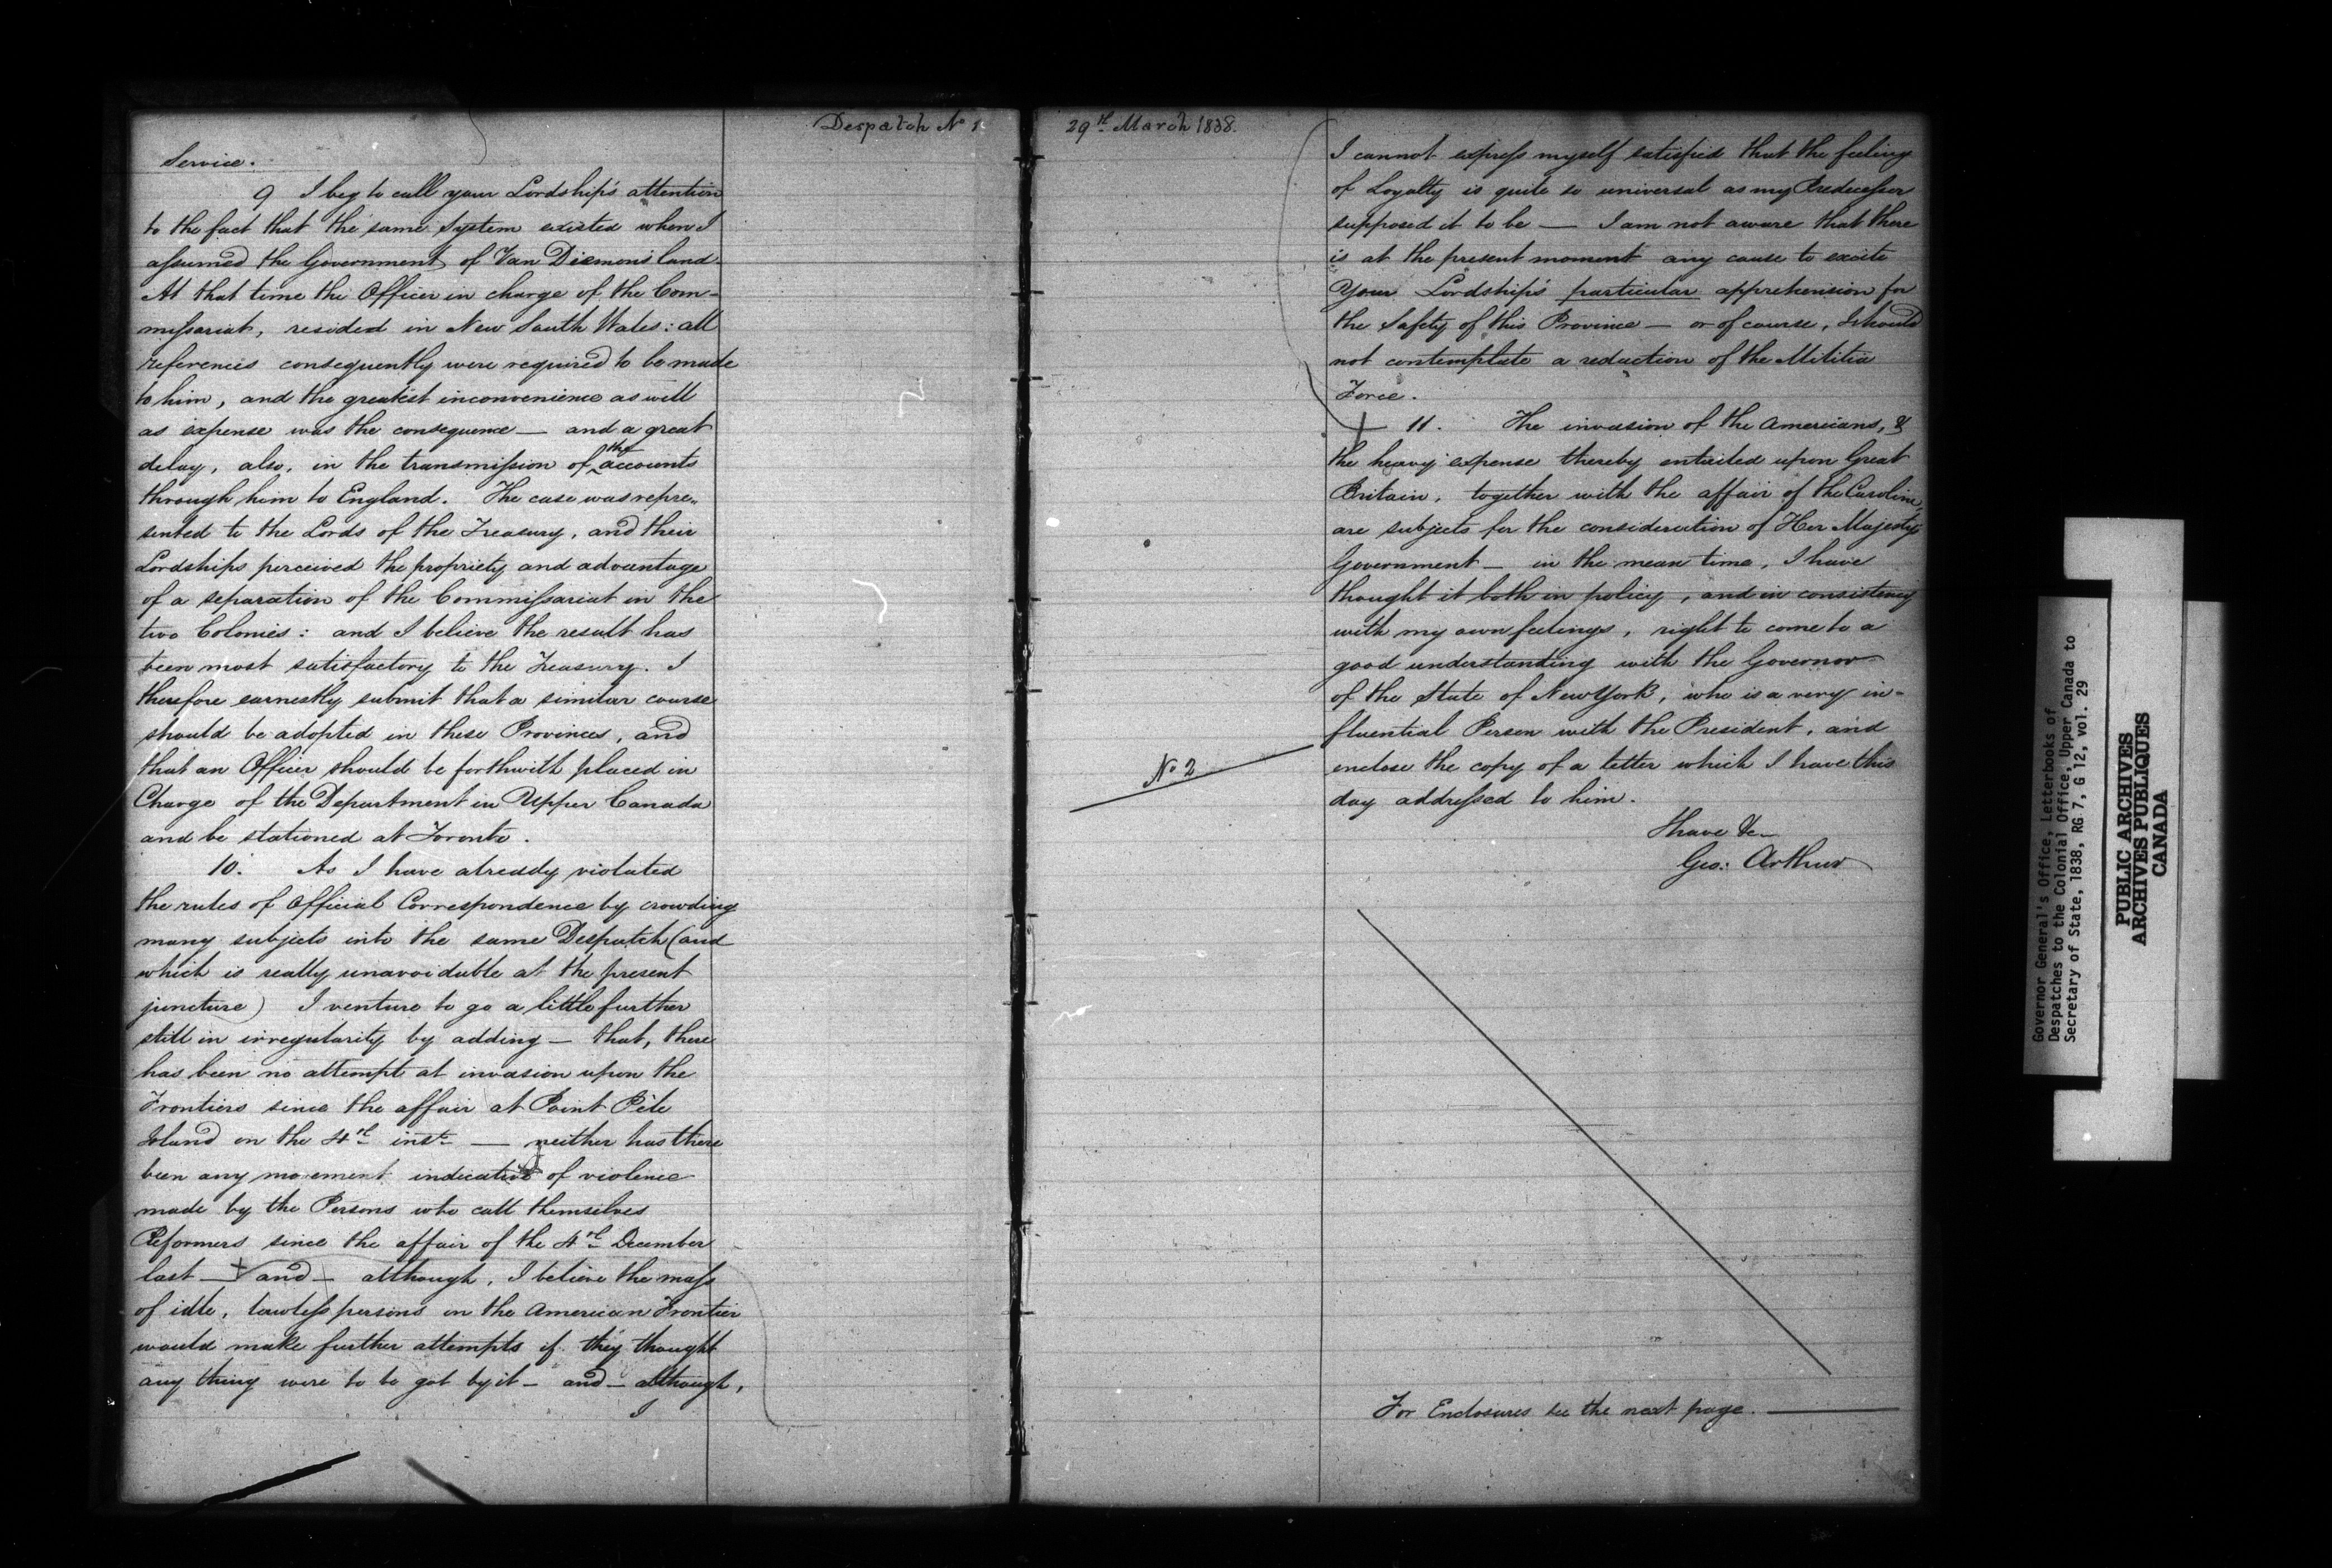 Despatch No 1
Service.
9 I beg to call your Lordship's attention
to the fact that the same System existed when I
assumed the Government of Van Diemons land.
At that time the Officer in charge of the Com-
missariat, resided in New South Wales: all
references consequently were required to be made
to him, and the greatest inconvenience as well
as expense was the consequence — and a great
delay, also, in the transmission of the accounts
through him to England. The case was repre-
sented to the Lords of the Treasury, and their
Lordships perceived the propriety and advantage
of a separation of the Commissariat in the
two Colonies: and I believe the result has
been most satisfactory to the Treasury. I
therefore earnestly submit that a similar course
should be adopted in these Provinces, and
that an Officer should be forthwith placed in
Charge of the Department in Upper Canada
and be stationed at Toronto.
10. As I have already violated
the rules of Official Correspondence by crowding
many subjects into the same Despatch (and
which is really unavoidable at the present
juncture) I venture to go a little further
still in irregularity by adding — that, there
has been no attempt at invasion upon the
Frontiers since the affair at Point Pélé
Island on the 4th inst — neither has there
been any movement indicative of violence
made by the Persons who call themselves
Reformers since the affair of the 4th December
last — + and — although, I believe the mass
of idle, lawless persons on the American Frontier
would make further attempts if they thought
any thing were to be got by it — and — although,
I
29th March 1838.
I cannot express myself satisfied that the feeling
of Loyalty is quite so universal as my Predecessor
supposed it to be — I am not aware that there
is at the present moment any cause to excite
Your Lordship's particular apprehension for
the Safety of this Province — or of course, I should
not contemplate a reduction of the Militia
Force.
+ 11. The invasion of the Americans, &
the heavy expense thereby entailed upon Great
Britain, together with the affair of the Caroline,
are subjects for the consideration of Her Majesty's
Government — in the mean time, I have
thought it both in policy, and in consistency
with my own feelings, right to come to a
good understanding with the Governor
of the State of New York, who is a very in-
fluential Person with the President, and
No 2
enclose the copy of a letter which I have this
day addressed to him.
I have &c
Geo: Arthur
For Enclosures see the next page.
Governor General's Office, Letterbooks of
Despatches to the Colonial Office, Upper Canada to
Secretary of State, 1838, RG 7, G 12, vol. 29
PUBLIC ARCHIVES
ARCHIVES PUBLIQUES
CANADA